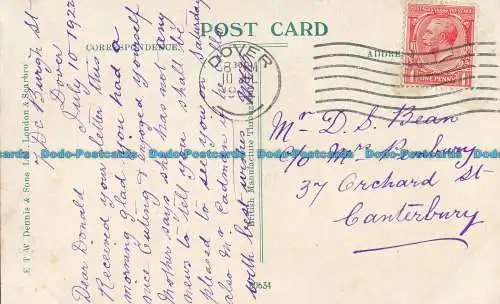 POST CARD
CORRESPONDENCE.
ADDRE
7 De Burgh St
Dover
July 10 1922
Dear Donald
Received your letter this
morning glad you had a
nice Outing & enjoyed yourself
Mother says she has not any
news to tell you shall be
pleased to see you on Saturday
also Mr Cadman
with best wishes
DOVER
ONE PENNY
Mr D. S. Bean
c/o Mrs Banbury
37 Orchard St
Canterbury
E. T. W. Dennis & Sons Ltd. London & Scarbro
British Manufacture Throughout
Dodo-Postcards Dodo-Postcards Dodo-Postcards Dodo-Postcards Dodo-Postcards